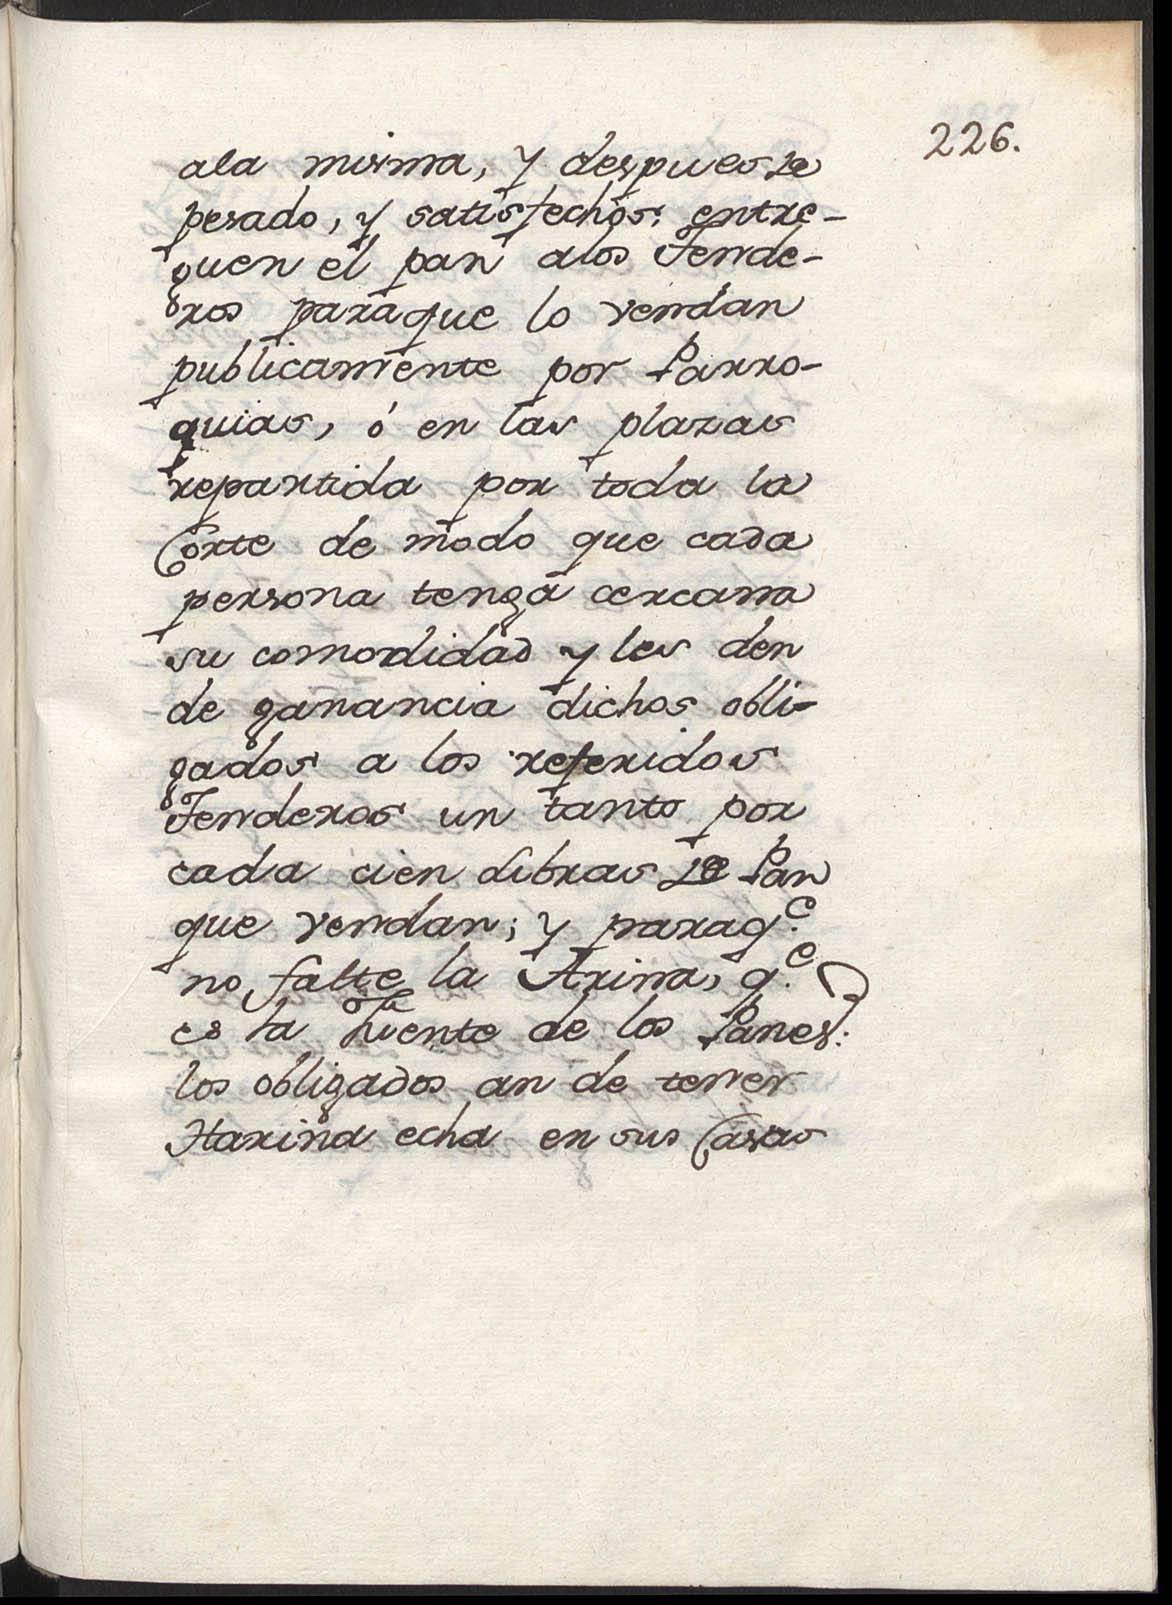 226.
ala misma, y despues de
pesado, y satisfechos: entre-
guen el pan alos Tende-
ros paraque lo vendan
publicamente por Parro-
quias, ó en las plazas
repartida por toda la
Corte de modo que cada
persona tenga cercana
su comodidad y les den
de ganancia dichos obli-
gados a los referidos
Tenderos un tanto por
cada cien libras de Pan
que vendan; y paraq.e
no falte la Arina, q.e
es la fuente de los Panes:
los obligados an de tener
Harina echa en sus Casas